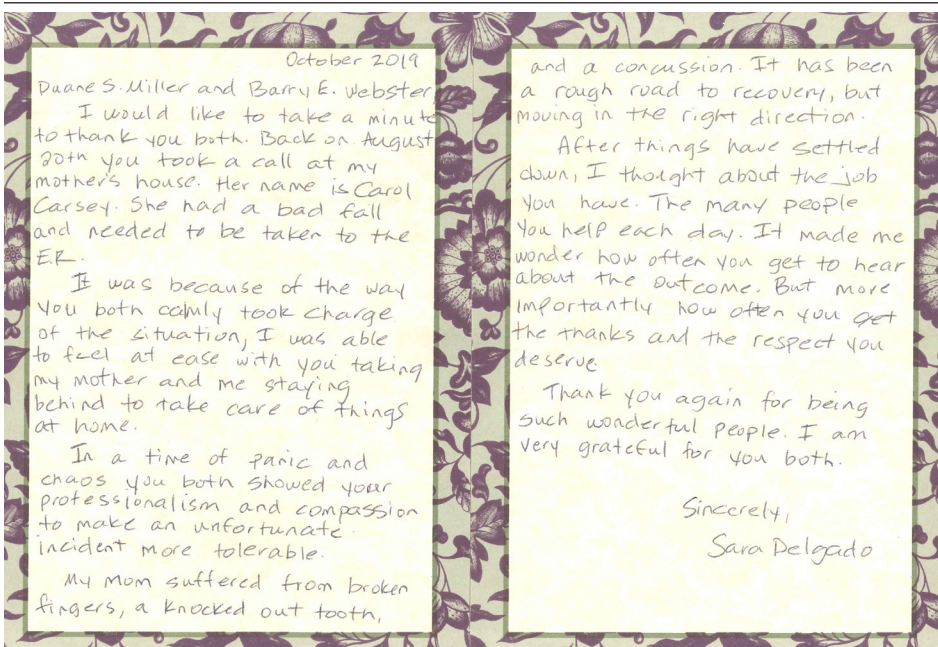 October 2019
Duane S. Miller and Barry E. Webster,
I would like to take a minute
to thank you both. Back on August
20th you took a call at my
mother's house. Her name is Carol
Carsey. She had a bad fall
and needed to be taken to the
E.R.
It was because of the way
you both calmly took charge
of the situation, I was able
to feel at ease with you taking
my mother and me staying
behind to take care of things
at home.
In a time of panic and
chaos you both showed your
professionalism and compassion
to make an unfortunate
incident more tolerable.
My mom suffered from broken
fingers, a knocked out tooth,
and a concussion. It has been
a rough road to recovery, but
moving in the right direction.
After things have settled
down, I thought about the job
you have. The many people
you help each day. It made me
wonder how often you get to hear
about the outcome. But more
importantly how often you get
the thanks and the respect you
deserve.
Thank you again for being
such wonderful people. I am
very grateful for you both.
Sincerely,
Sara Delgado